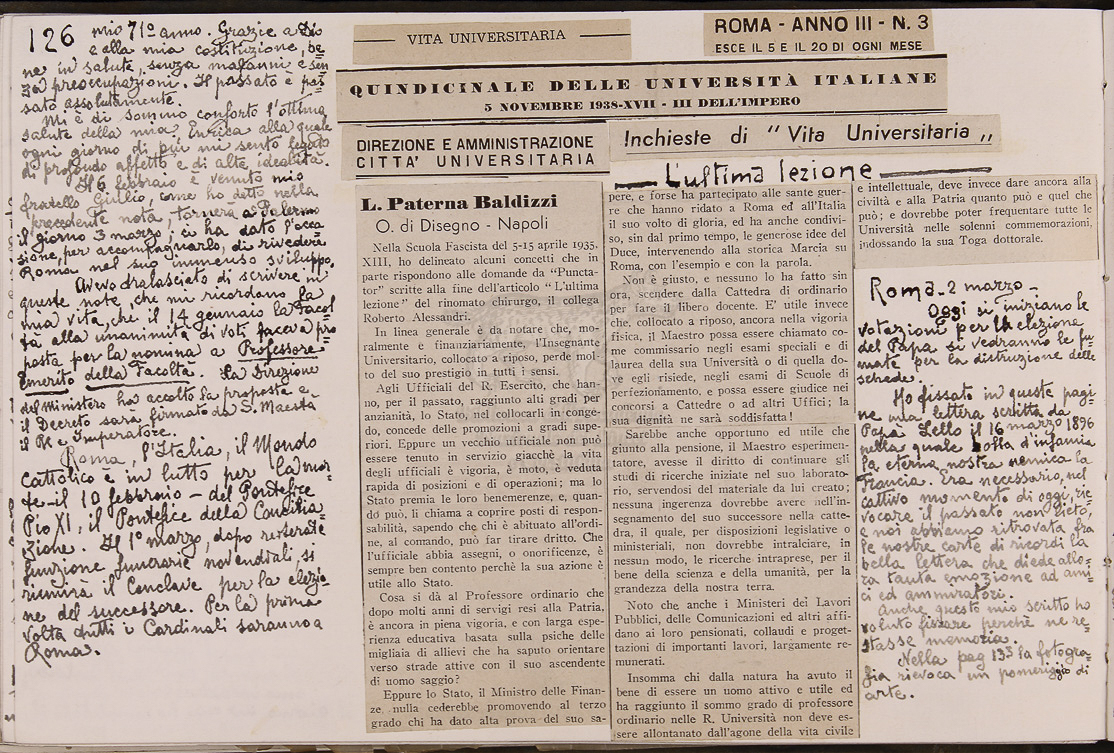 126 mio 71º anno. Grazie a Dio
e alla mia costituzione, be=
ne in salute, senza malanni e sen
za preoccupazioni. Il passato è pas
sato assolutamente.
Mi è di sommo conforto l'ottima
salute della mia Enrica alla quale
ogni giorno di più mi sento legato
di profondo affetto e di alta idealità.
Il 6 febbraio è venuto mio
fratello Giulio, come ho detto nella
precedente nota, tornerà a Palermo
il giorno 3 marzo; ci ha dato l'occa=
sione, per accompagnarlo, di rivedere
Roma nel suo immenso sviluppo.
Avevo tralasciato di scrivere in
queste note, che mi ricordano la
mia vita, che il 14 gennaio la Facol
tà alla unanimità di voti faceva pro
posta per la nomina a Professore
Emerito della Facoltà. La Direzione
del Ministero ha accolto la proposta e
il Decreto sarà firmato da S. Maestà
il Re e Imperatore.
Roma, l'Italia, il Mondo
Cattolico è in lutto per la mor
te - il 10 febbraio - del Pontefice
Pio XI, il Pontefice della Concilia
zione. Il 1º marzo, dopo
funzione funerarie novendiali, si
riunirà il Conclave per la elezio
ne del successore. Per la prima
volta tutti i Cardinali saranno a
Roma.
VITA UNIVERSITARIA
ROMA - ANNO III - N. 3
ESCE IL 5 E IL 20 DI OGNI MESE
QUINDICINALE DELLE UNIVERSITÀ ITALIANE
5 NOVEMBRE 1938-XVII - III DELL'IMPERO
DIREZIONE E AMMINISTRAZIONE
CITTA' UNIVERSITARIA
Inchieste di "Vita Universitaria„
L'ultima lezione
L. Paterna Baldizzi
O. di Disegno - Napoli
Nella Scuola Fascista del 5-15 aprile 1935.
XIII, ho delineato alcuni concetti che in
parte rispondono alle domande da "Puncta-
tor" scritte alla fine dell'articolo "L'ultima
lezione" del rinomato chirurgo, il collega
Roberto Alessandri.
In linea generale è da notare che, mo-
ralmente e finanziariamente, l'Insegnante
Universitario, collocato a riposo, perde mol-
to del suo prestigio in tutti i sensi.
Agli Ufficiali del R. Esercito, che han-
no, per il passato, raggiunto alti gradi per
anzianità, lo Stato, nel collocarli in conge-
do, concede delle promozioni a gradi supe-
riori. Eppure un vecchio ufficiale non può
essere tenuto in servizio giacchè la vita
degli ufficiali è vigoria, è moto, è veduta
rapida di posizioni e di operazioni; ma lo
Stato premia le loro benemerenze, e, quan-
do può, li chiama a coprire posti di respon-
sabilità, sapendo che chi è abituato all'ordi-
ne, al comando, può far tirare dritto. Che
l'ufficiale abbia assegni, o onorificenze, è
sempre ben contento perchè la sua azione è
utile allo Stato.
Cosa si dà al Professore ordinario che
dopo molti anni di servigi resi alla Patria,
è ancora in piena vigoria, e con larga espe-
rienza educativa basata sulla psiche delle
migliaia di allievi che ha saputo orientare
verso strade attive con il suo ascendente
di uomo saggio?
Eppure lo Stato, il Ministro delle Finan-
ze, nulla cederebbe promovendo al terzo
grado chi ha dato alta prova del suo sa-
pere, e forse ha partecipato alle sante guer-
re che hanno ridato a Roma ed all'Italia
il suo volto di gloria, ed ha anche condivi-
so, sin dal primo tempo, le generose idee del
Duce, intervenendo alla storica Marcia su
Roma, con l'esempio e con la parola.
Non è giusto, e nessuno lo ha fatto sin
ora, scendere dalla Cattedra di ordinario
per fare il libero docente. E' utile invece
che, collocato a riposo, ancora nella vigoria
fisica, il Maestro possa essere chiamato co-
me commissario negli esami speciali e di
laurea della sua Università o di quella do-
ve egli risiede, negli esami di Scuole di
perfezionamento, e possa essere giudice nei
concorsi a Cattedre o ad altri Uffici; la
sua dignità ne sarà soddisfatta!
Sarebbe anche opportuno ed utile che
giunto alla pensione, il Maestro esperimen-
tatore, avesse il diritto di continuare gli
studi di ricerche iniziate nel suo laborato-
rio, servendosi del materiale da lui creato;
nessuna ingerenza dovrebbe avere nell'in-
segnamento del suo successore nella catte-
dra, il quale, per disposizioni legislative o
ministeriali, non dovrebbe intralciare, in
nessun modo, le ricerche intraprese, per il
bene della scienza e della umanità, per la
grandezza della nostra terra.
Noto che anche i Ministeri dei Lavori
Pubblici, delle Comunicazioni ed altri affi-
dano ai loro pensionati, collaudi e proget-
tazioni di importanti lavori, largamente re-
munerati.
Insomma chi dalla natura ha avuto il
bene di essere un uomo attivo e utile ed
ha raggiunto il sommo grado di professore
ordinario nelle R. Università non deve es-
sere allontanato dall'agone della vita civile
e intellettuale, deve invece dare ancora alla
civiltà e alla Patria quanto può e quel che
può; e dovrebbe poter frequentare tutte le
Università nelle solenni commemorazioni,
indossando la sua Toga dottorale.
Roma - 2 marzo -
Oggi si iniziano le
votazioni per la elezione
del Papa si vedranno le fu=
mate per la distruzione delle
schede.
Ho fissato in queste pagi=
ne una lettera scritta da
Papà Lello il 16 marzo 1896
nella quale bolla d'infamia
la eterna nostra nemica la
Francia. Era necessario, nel
cattivo momento di oggi, rie
vocare il passato non lieto,
e noi abbiamo ritrovata fra
le nostre carte di ricordi la
bella lettera che diede allo=
ra tanta emozione ad ami=
ci ed ammiratori.
Anche questo mio scritto ho
voluto fissare perchè ne re=
stasse memoria.
Nella pag 133 la fotogra=
fia rievoca un pomeriggio di
arte.